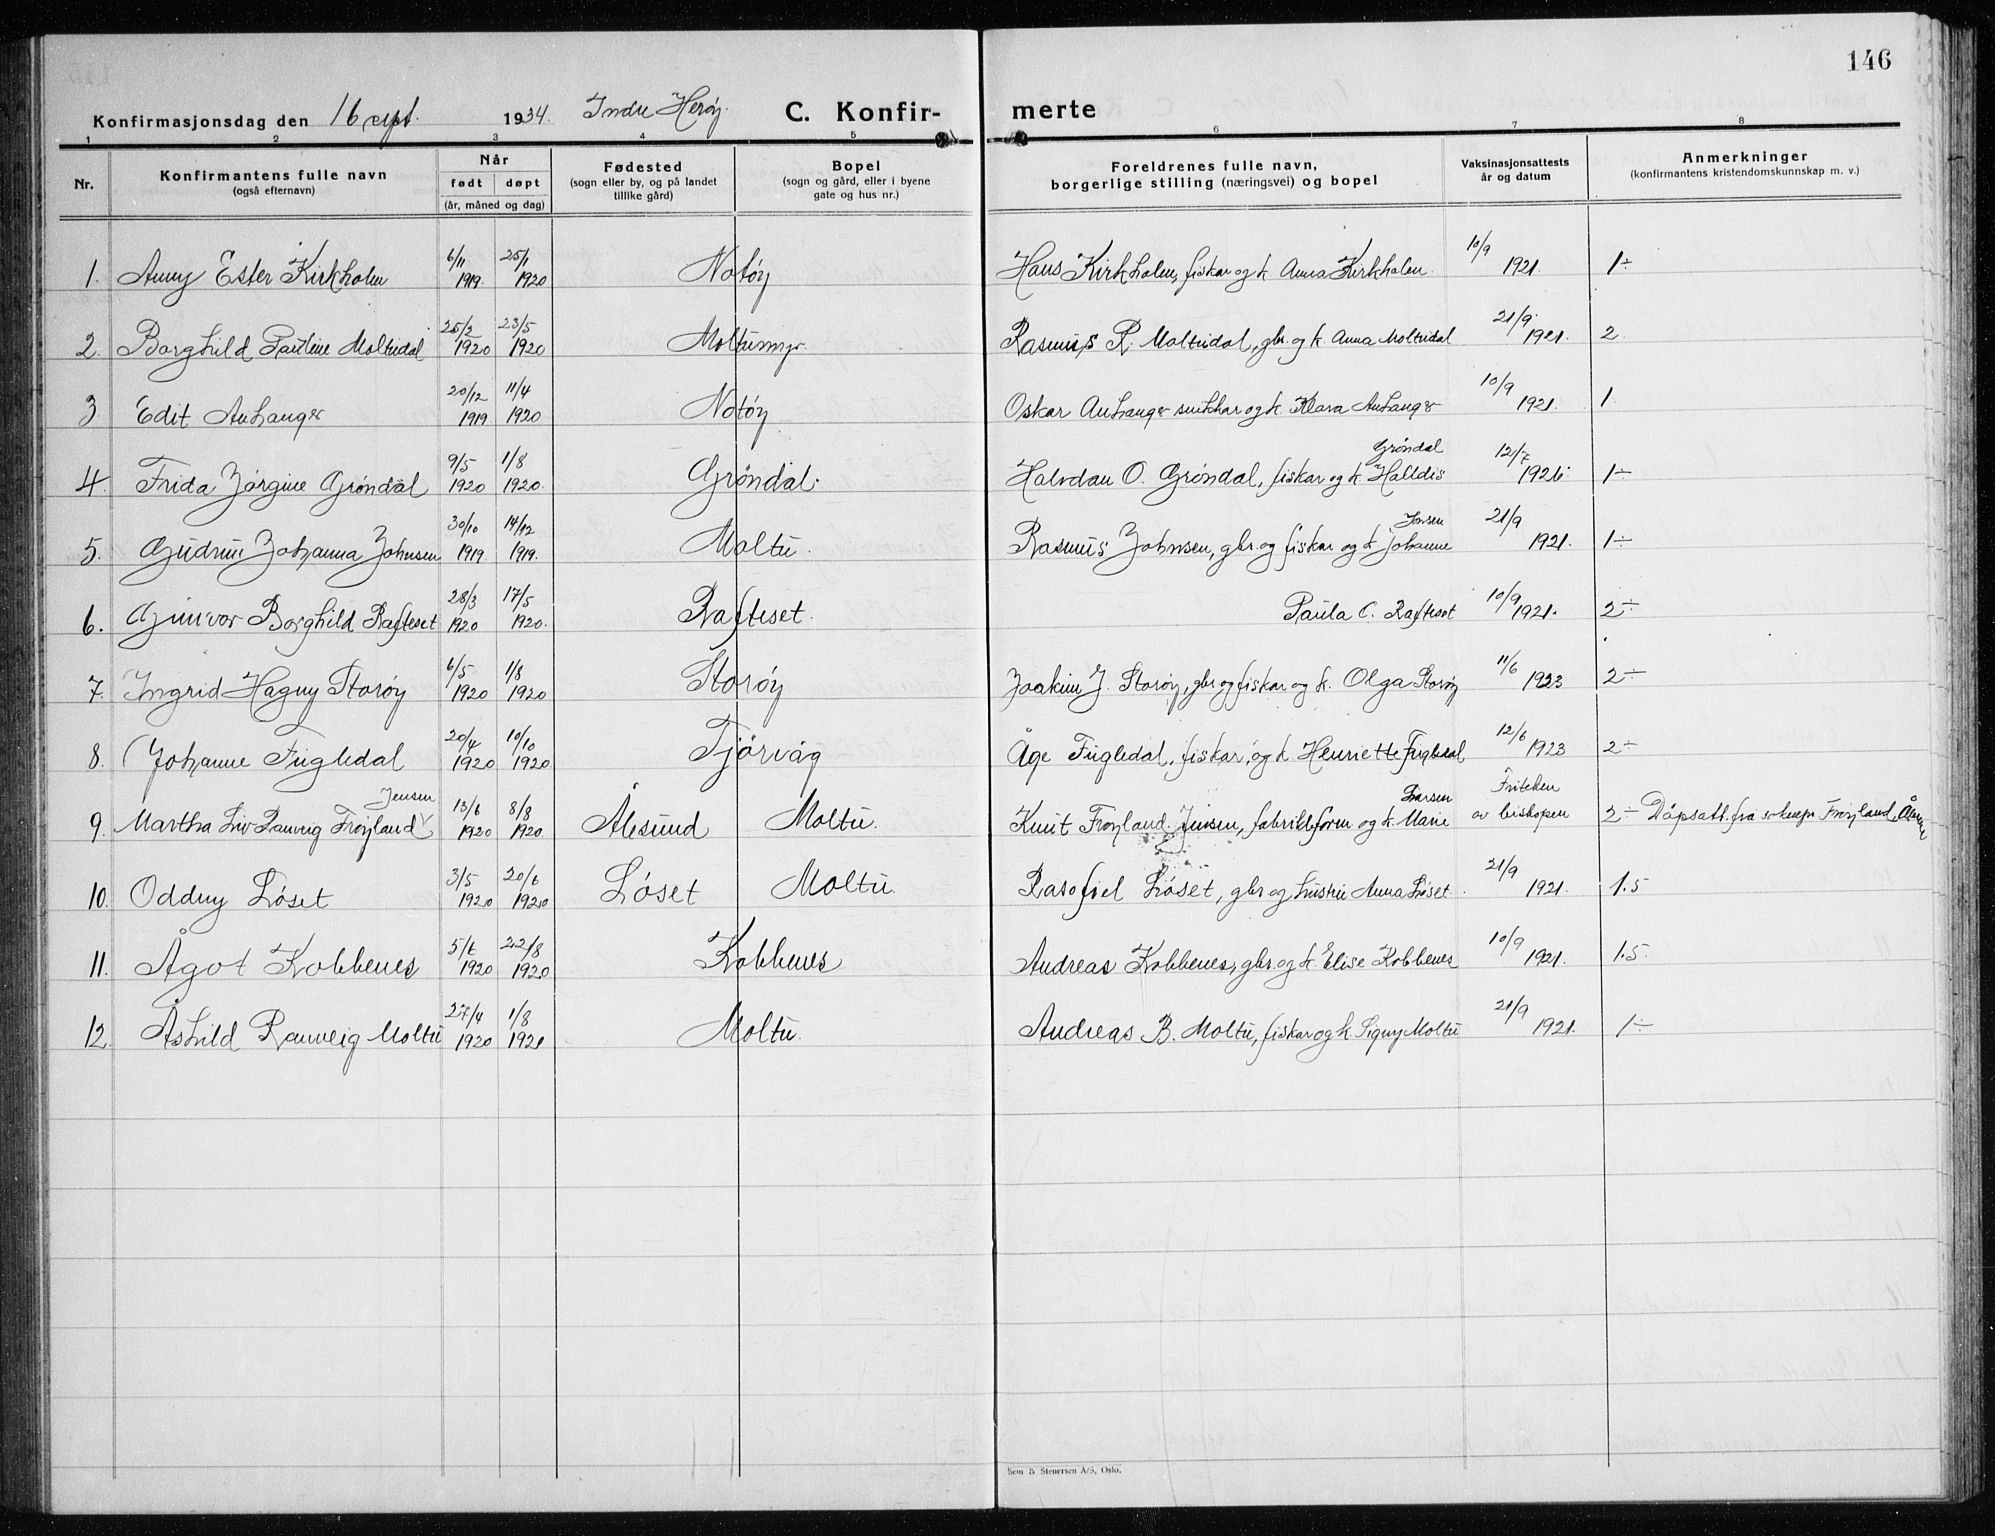 146
Konfirmasjonsdag den 16 sept. 1934. Indre Herøy. C. Konfir- merte
1 2 3 4 5 6 7 8
Nr. Konfirmantens fulle navn (også efternavn) Når født døpt (år, måned og dag) Fødested (sogn eller by, og på landet tillike gård) Bopel (sogn og gård, eller i byene gate og hus nr.) Foreldrenes fulle navn, borgerlige stilling (næringsvei) og bopel Vaksinasjonsattests år og datum Anmerkninger (konfirmantens kristendomskunnskap m. v.)
1. Anny Ester Kirkholm 6/11 1919. 25/1 1920 Notøy Hans Kirkholm, fiskar og k. Anna Kirkholm. 10/9 1921. 1÷
2. Borghild Pauline Moltudal 25/2 1920 23/5 1920 Moltumyr Rasmus R. Moltudal, gbr. og k. Anna Moltudal 21/9 1921. 2.
3 Edit Auhauger 20/12 1919 11/4 1920 Notøy Oskar Auhauger snikkar og k. Klara Auhauger 10/9 1921. 1.
4. Frida Jørgine Grøndal 9/5 1920 1/8 1920. Grøndal. Halvdan O. Grøndal, fiskar og k Halldis Grøndal 12/7 1926. 1÷
5. Gudrun Johanna Johnsen 30/10 1919 14/12 1919. Moltu. Rasmus Johnsen, gbr. og fiskar og k Johanne Jonsen 21/9 1921. 1÷
6. Gunvor Borghild Rafteset 28/3 1920 17/5 1920. Rafteset. Paula C. Rafteset 10/9 1921. 2÷
7. Ingrid Hagny Storøy 6/5 1920 1/8 1920 Storøy Joakim J. Storøy, gbr og fiskar og k. Olga Storøy 11/6 1923 2÷
8. Johanne Fugledal 20/4 1920 10/10 1920 Tjørvåg Åge Fugledal, fiskar, og k Henriette Fugledal 12/6 1923 2÷
9. Martha Liv Ranveig Frøyland Jensen 13/6 1920 8/8 1920. Ålesund Moltu. Knut Frøyland Jensen, fabrikkform og k. Marie Larsen Friteken av biskopen 2÷ Dåpsatt. fra soknepr Frøyland,
10. Oddny Løset 3/5 1920 20/6 1920 Løset Moltu. Løset, gbr og hustru Anna Løset. 21/9 1921. 1.5
11. Ågot Kobbenes 5/6 1920 22/8 1920 Kobbenes Andreas Kobbenes, gbr. og k. Elise Kobbenes 10/9 1921. 1.5.
12. Åshild Ranveig Moltu 27/4 1920 1/8 1920 Moltu. Andreas B. Moltu, fiskar og k. Signy Moltu 21/9 1921. 1÷
Sem & Stenersen A/S, Oslo.